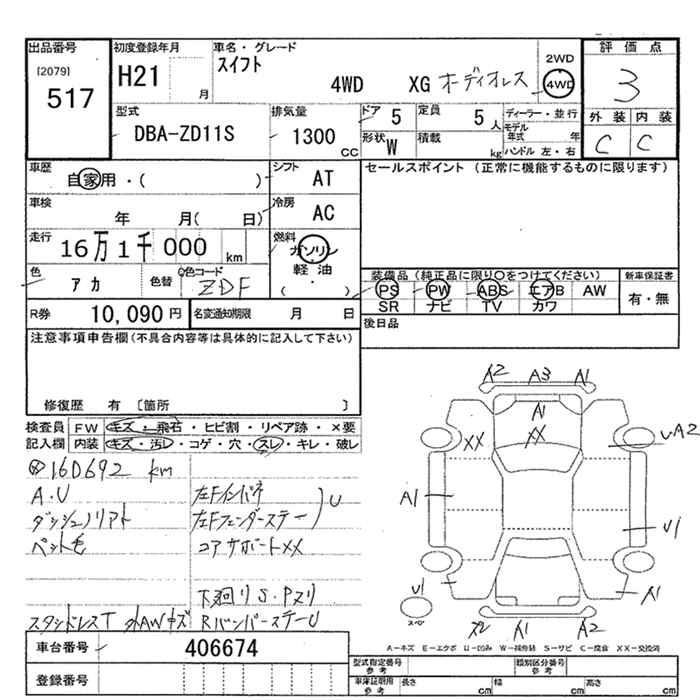 出品番号 初度登録年月 車名・グレード 2WD 評価点
[2079] スイフト
517 H21 月 4WD XG オーディオレス 4WD 3
型式 排気量 ドア 5 定員 5人 ディーラー・並行 外装 内装
DBA-ZD11S 1300 CC 形状 W 積載 kg モデル年式 年 C C
ハンドル 左・右
車歴 自家用・( ) シフト AT セールスポイント (正常に機能するものに限ります)
車検 年 月( 日) 冷房 AC
走行 16万1千000 km 燃料 ガソリン
軽油
( ・ )
色 アカ 色替 色コード ZDF 装備品 (純正品に限り〇をつけてください) 新車保証書
PS PW ABS エアB AW 有・無
SR ナビ TV カワ
R券 10,090円 名変通知期限 月 日 後日品
注意事項申告欄(不具合内容等は具体的に記入して下さい)
修復歴 有 〔箇所 〕
検査員 FW キズ・飛石・ヒビ割・リペア跡・×要
記入欄 内装 キズ・汚レ・コゲ・穴・スレ・キレ・破レ
160692 km
A.U 左Fインパネ
左Fフェンダーステー U
ペット毛 コアサポートXX
下廻りS.Pヌリ
スタッドレスT 外AWキズ RバンパーステーU
車台番号 406674
登録番号
A2 A3 A1
A1
XX XX UA2
A1 U1
U1 A1
スペア
A1 A2
A=キズ E=エクボ U=凹み W=補修跡 S=サビ C=腐食 XX=交換済
型式指定番号 参考 類別区分番号 参考
車庫証明用 参考 長さ cm 幅 cm 高さ cm